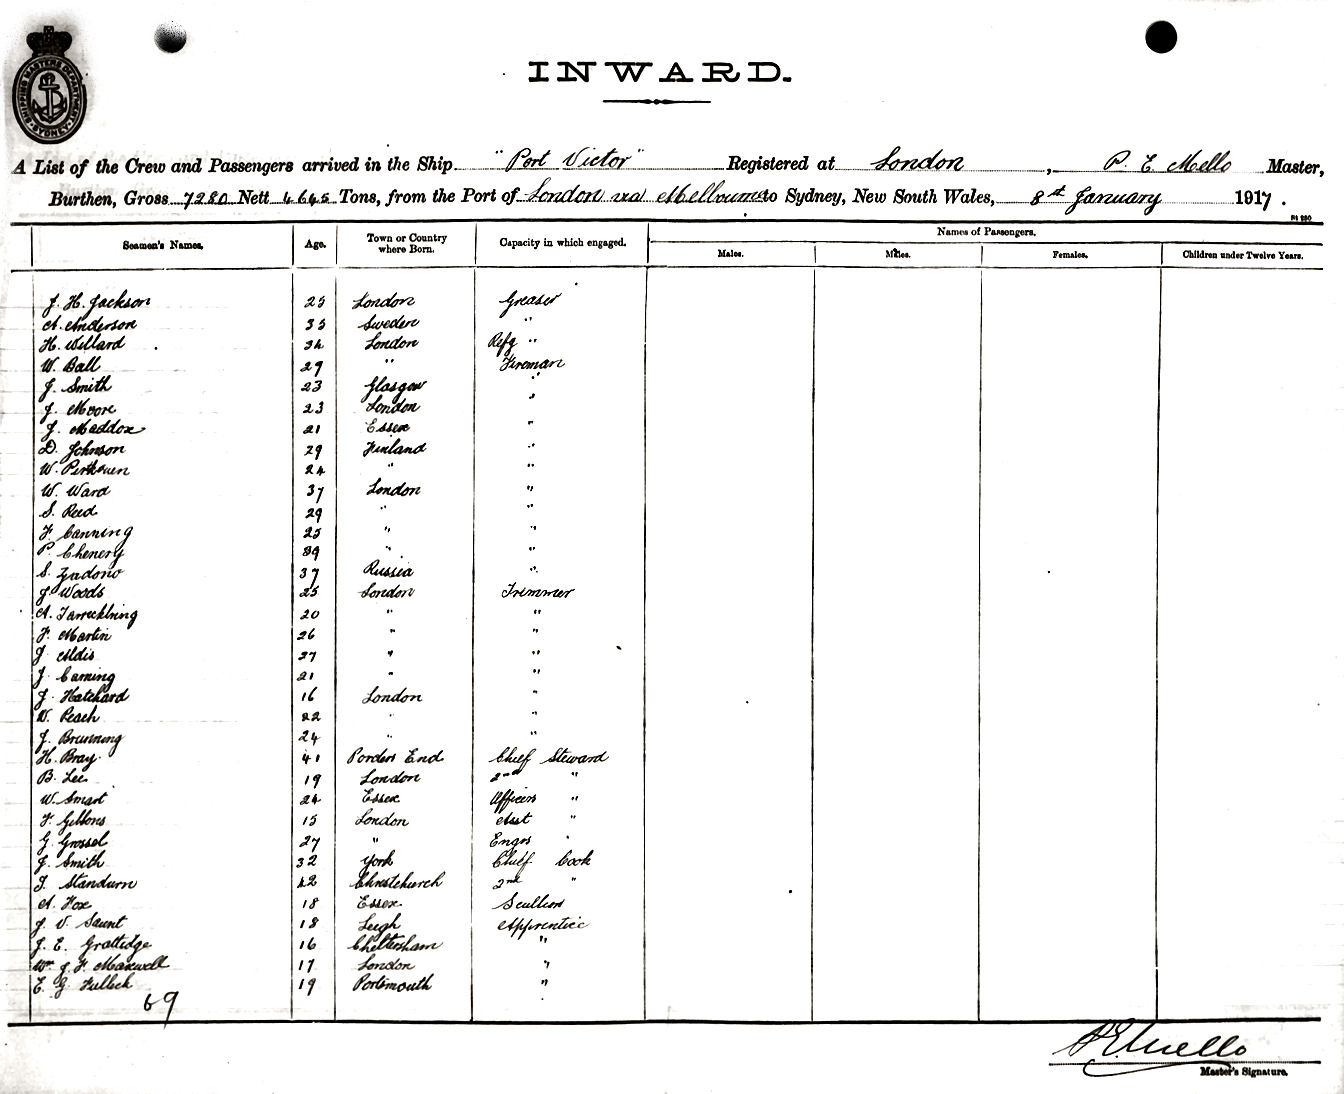 SHIPPING MASTERS DEPARTMENT SYDNEY
INWARD.
A List of the Crew and Passengers arrived in the Ship "Port Victor" Registered at London, P. E. Mello Master,
Burthen, Gross 7280 Nett 4645 Tons, from the Port of London via Melbourne to Sydney, New South Wales, 8th January 1917.
Seamen's Names. Age. Town or Country where Born. Capacity in which engaged. Names of Passengers.
Males. Males. Females. Children under Twelve Years.
J. H. Jackson 25 London Greaser
A. Anderson 35 Sweden "
H. Willard 34 London Refg "
W. Ball 29 " Fireman
J. Smith 23 Glasgow "
J. Moore 23 London "
J. Maddox 21 Essex "
D. Johnson 29 Finland "
W. 24 " "
W. Ward 37 London "
S. Reed 29 " "
F. Canning 25 " "
P. Chenery 39 " "
S. Zadono 37 Russia "
J. Woods 25 London Trimmer
A. 20 " "
F. Martin 26 " "
J. Aldis 27 " "
J. Canning 21 " "
J. Hatchard 16 London "
W. Peach 22 " "
J. Brunning 24 " "
H. Bray 41 Ponders End Chief Steward
B. Lee 19 London 2nd "
W. Smart 24 Essex Officers "
F. Gibbons 15 London Asst "
G. Grossel 27 " Engrs "
J. Smith 32 York Chief Cook
J. Standurn 42 Christchurch 2nd "
A. Fox 18 Essex Scullion
J. V. Saunt 18 Leigh Apprentice
J. E. Grattidge 16 Cheltenham "
Wm J. F. Maxwell 17 London "
E. G. Fulleck 19 Portsmouth "
69
P. E. Mello
Master's Signature.